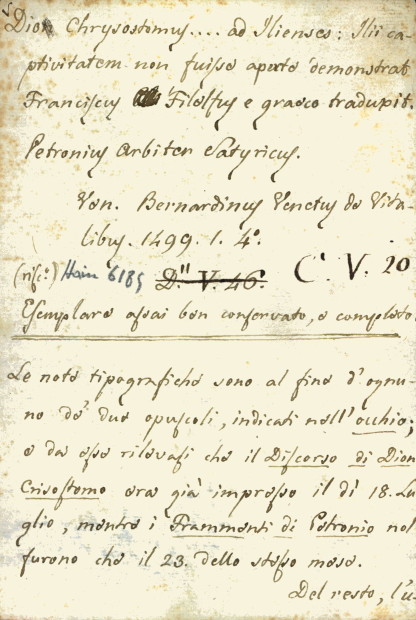 Dion Chrysostomus.... ad Ilienses: Ilii ca-
ptivitatem non fuisse aperte demonstrat
Franciscus Filelfus e graeco traduxit.
Petronius Arbiter Satyricus.
Ven. Bernardinus Venetus de Vita-
libus. 1499. 1. 4°.
(risc.°) Hain 6185 D." V. 46. C. V. 20
Esemplare assai ben conservato, e completo.
Le note tipografiche sono al fine d'ognu-
no de' due opuscoli, indicati nell'occhio;
e da esse rilevasi che il Discorso di Dion
Crisostomo era già impresso il dì 18. Lu
glio, mentre i Frammenti di Petronio nol
furono che il 23. dello stesso mese.
Del resto, l'u-